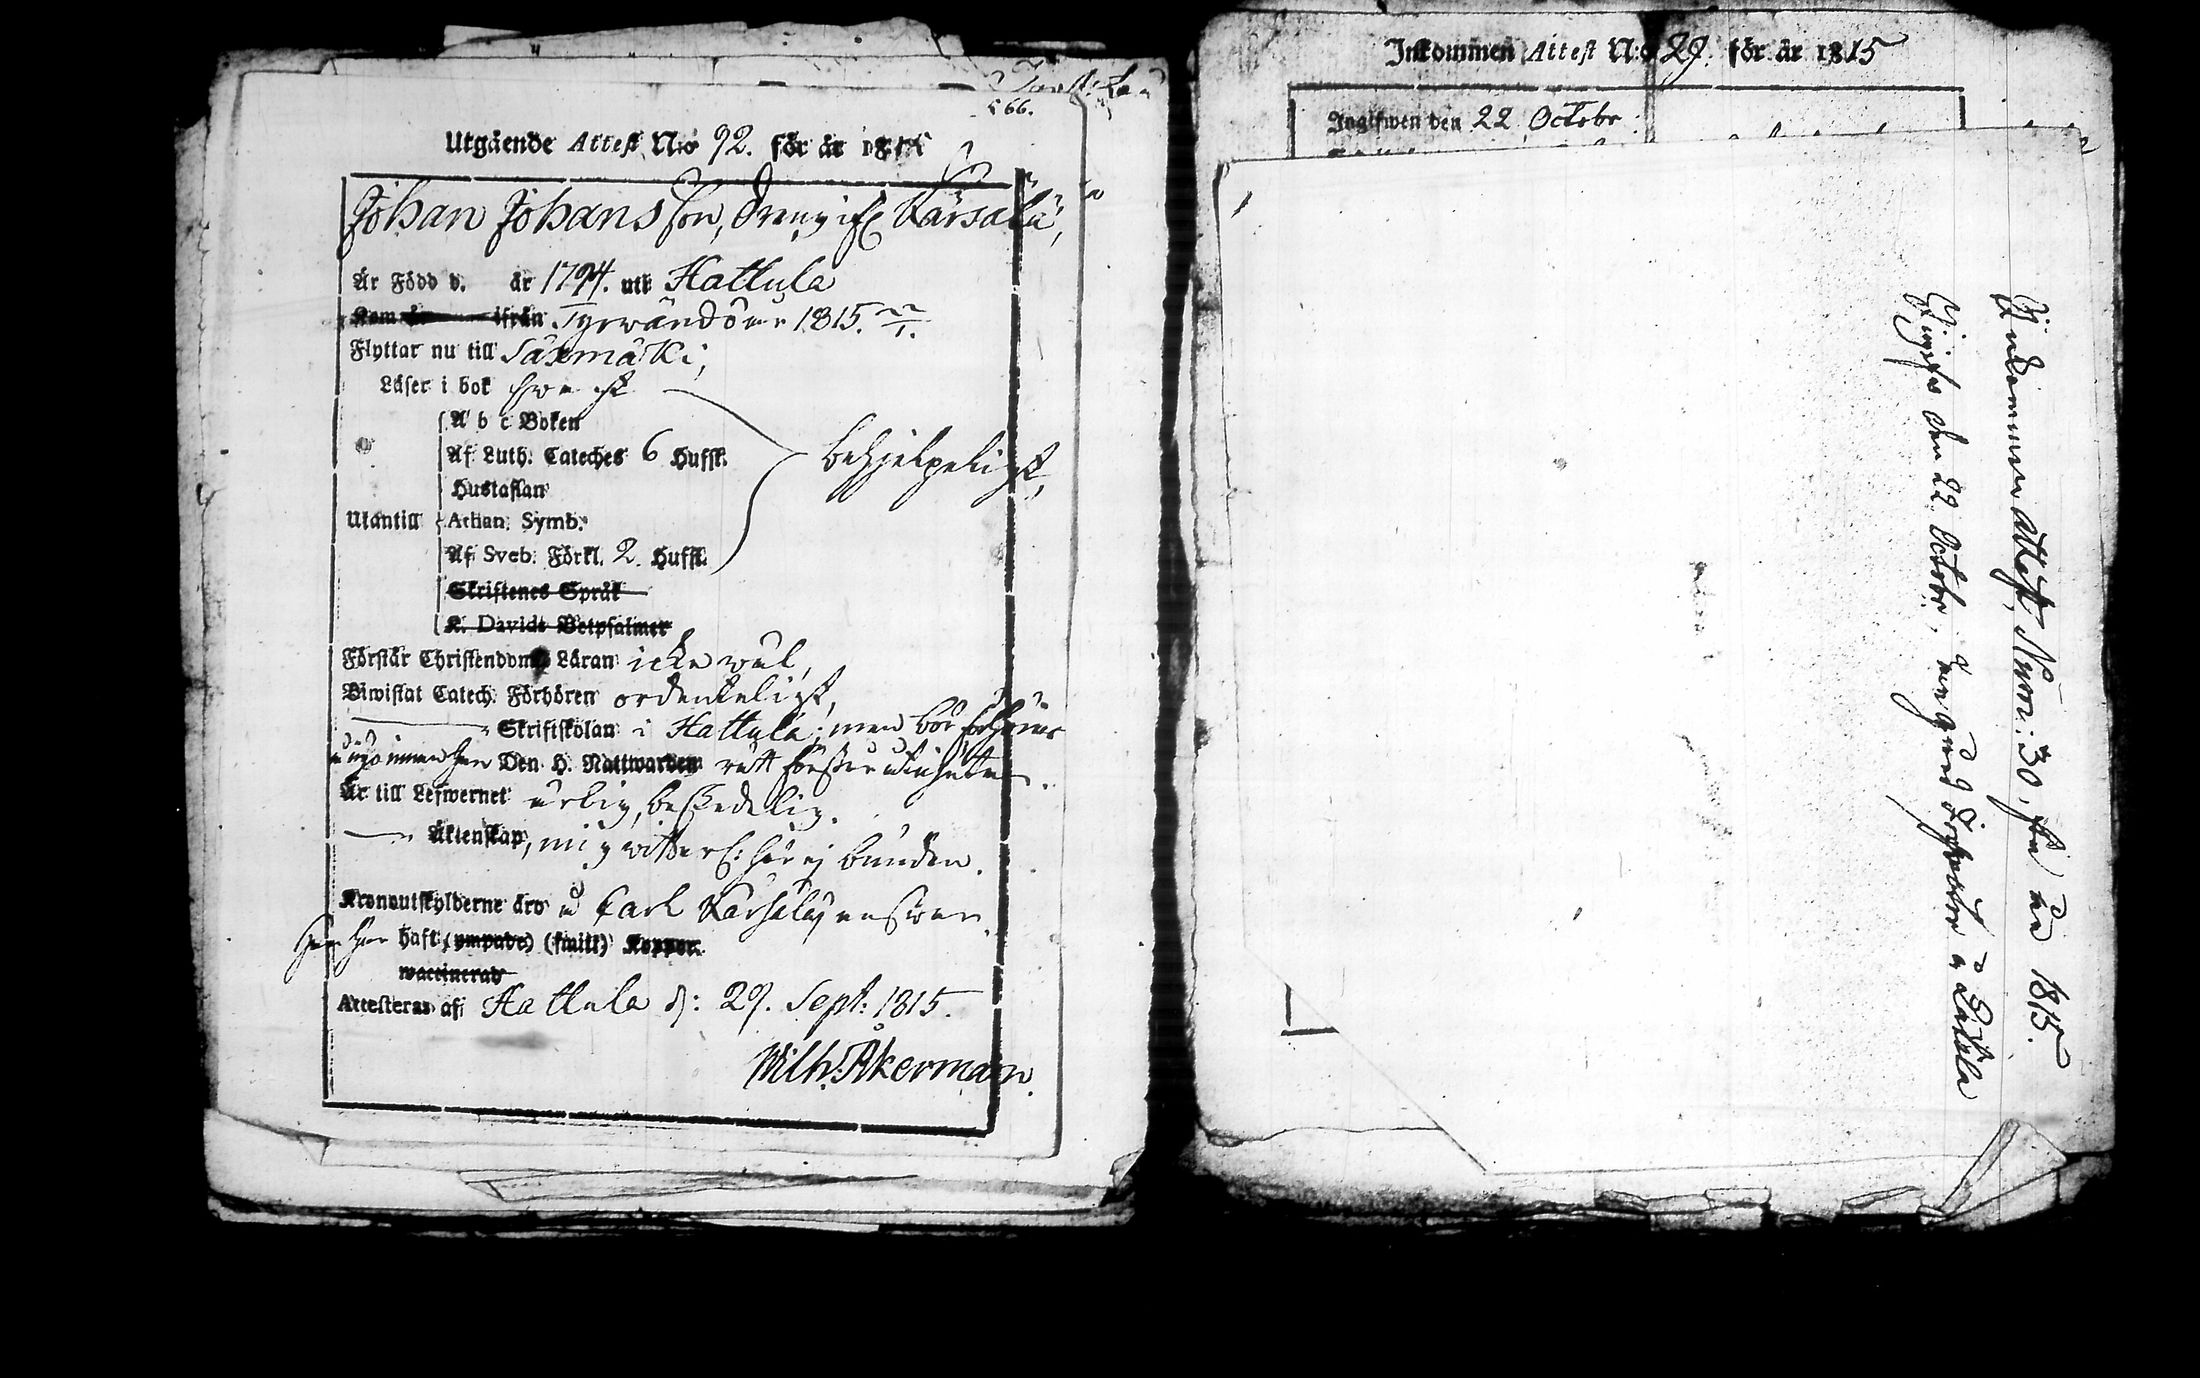 566.
Utgående Attest N:o 92. för år 1815
Johan Johansson, dräng ifr. Karsala,
Är Född d. år 1794. uti Hattula
Kom år ifrån Tyrwändö 1815.
Flyttar nu till Säxmäki,
Läser i bok swensk
A b c Boken
Af Luth: Cateches 6 Hufst.
Hustaflan
Utantill Athan. Symb:
Af Sveb: Förkl. 2. Hufst.
behjelpeligt,
Skriftenes Språk
K. Davids Botpsalmer
Förstår Christendoms Läran icke wäl,
Biwistat Catech. Förhören ordenteligt,
Skriftskolan i Hattula; men bör
Den H. Nattwarden rätt
Är till Lefwernet ärlig, beskedelig.
Äktenskap, mig witterl: här ej bunden.
Kronoutskylderne äro å Carl Karsala
haft (ympade) (smitt) Koppor.
waccinerad
Attesteras af: Hattula d: 29. Sept: 1815.
Wilh: Åkerman.
Inkommen Attest N:o 29. för år 1815
Ingifwen den 22 Octobr
Inkommen attest, Num: 30. för år 1815.
Ingifv. den 22 Octobr, angående